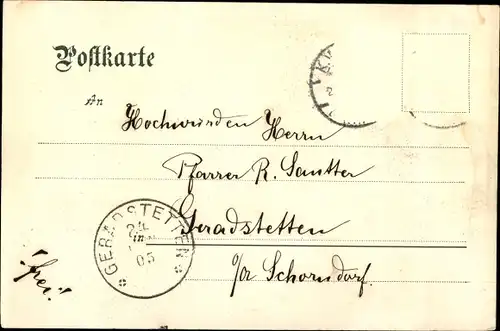 Postkarte
An
Hochwürden Herrn
Pfarrer R. Sautter
in
Geradstetten
o/r Schorndorf.
frei!
GERADSTETTEN
24
05